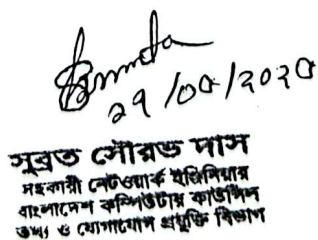 29/04/2020
সুব্রত সৌরভ দাস
সহকারী নেটওয়ার্ক ইঞ্জিনিয়ার
বাংলাদেশ কম্পিউটার কাউন্সিল
তথ্য ও যোগাযোগ প্রযুক্তি বিভাগ